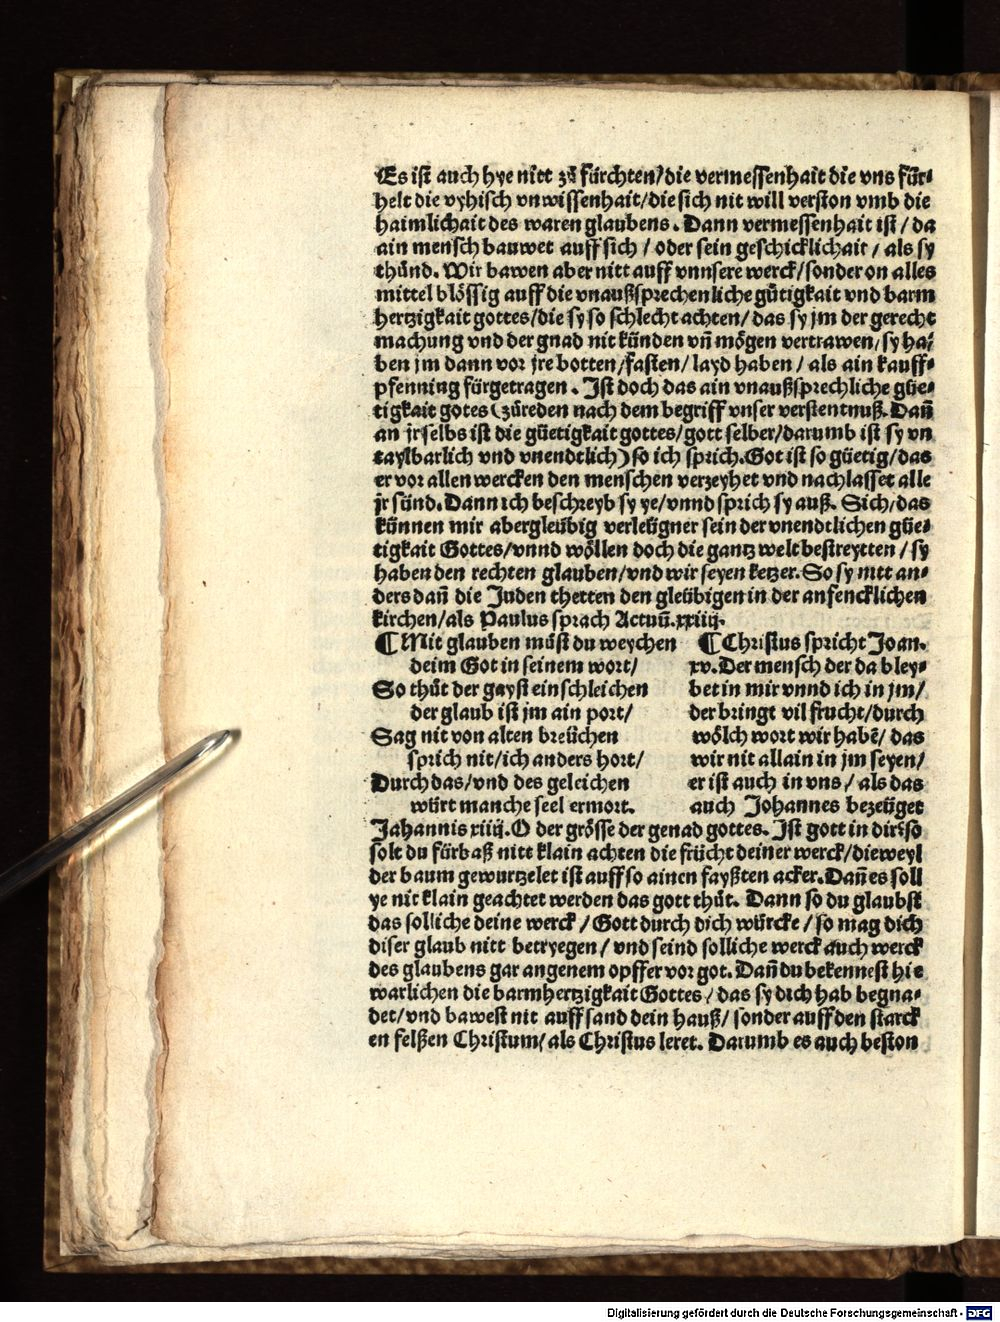 Es ist auch hye nitt zů fürchten/die vermessenhait die vns für⸗
helt die vyhisch vnwissenhait/die sich nit will verston vmb die
haimlichait des waren glaubens. Dann vermessenhait ist/da
ain mensch bauwet auff sich/oder sein geschicklichait/als sy
thůnd. Wir bawen aber nitt auff vnnsere werck/sonder on alles
mittel blössig auff die vnaußsprechenliche gůtigkait vnd barm
hertzigkait gottes/die sy so schlecht achten/das sy jm der gerecht
machung vnd der gnad nit künden vñ mögen vertrawen/sy ha⸗
ben jm dann vor jre botten/fasten/layd haben/als ain kauff⸗
pfenning fürgetragen. Ist doch das ain vnaußsprechliche güe⸗
tigkait gotes (zůreden nach dem begriff vnser verstentnuß. Dañ
an jrselbs ist die güetigkait gottes/gott selber/darumb ist sy vn
taylbarlich vnd vnendtlich) so ich sprich. Got ist so güetig/das
er vor allen wercken den menschen verzeyhet vnd nachlasset alle
jr sünd. Dann ich beschreyb sy ye/vnnd sprich sy auß. Sich/das
künnen mir abergleübig verleügner sein der vnendtlichen güe⸗
tigkait Gottes/vnnd wöllen doch die gantz welt bestreytten/sy
haben den rechten glauben/vnd wir seyen ketzer. So sy nitt an⸗
ders dañ die Juden thetten den gleübigen in der anfencklichen
kirchen/als Paulus sprach Actuū. xxiiij.
¶ Mit glauben můst du weychen
deim Got in seinem wort/
So thůt der gayst einschleichen
der glaub ist jm ain port/
Sag nit von alten breüchen
sprich nit/ich anders hort/
Durch das/vnd des geleichen
würt manche seel ermort.
¶ Christus spricht Joan.
xv. Der mensch der da bley⸗
bet in mir vnnd ich in jm/
der bringt vil frucht/durch
wölch wort wir habē/das
wir nit allain in jm seyen/
er ist auch in vns/als das
auch Johannes bezeüget
Jahannis xiiij. O der grösse der genad gottes. Ist gott in dir/so
solt du fürbaß nitt klain achten die frücht deiner werck/dieweyl
der baum gewurtzelet ist auff so ainen fayßten acker. Dañ es soll
ye nit klain geachtet werden das gott thůt. Dann so du glaubst
das solliche deine werck/Gott durch dich würcke/so mag dich
diser glaub nitt betryegen/vnd seind solliche werck auch werck
des glaubens gar angenem opffer vor got. Dañ du bekennest hie
warlichen die barmhertzigkait Gottes/das sy dich hab begna⸗
det/vnd bawest nit auff sand dein hauß/sonder auff den starck
en felßen Christum/als Christus leret. Darumb es auch beston
Digitalisierung gefördert durch die Deutsche Forschungsgemeinschaft - DFG